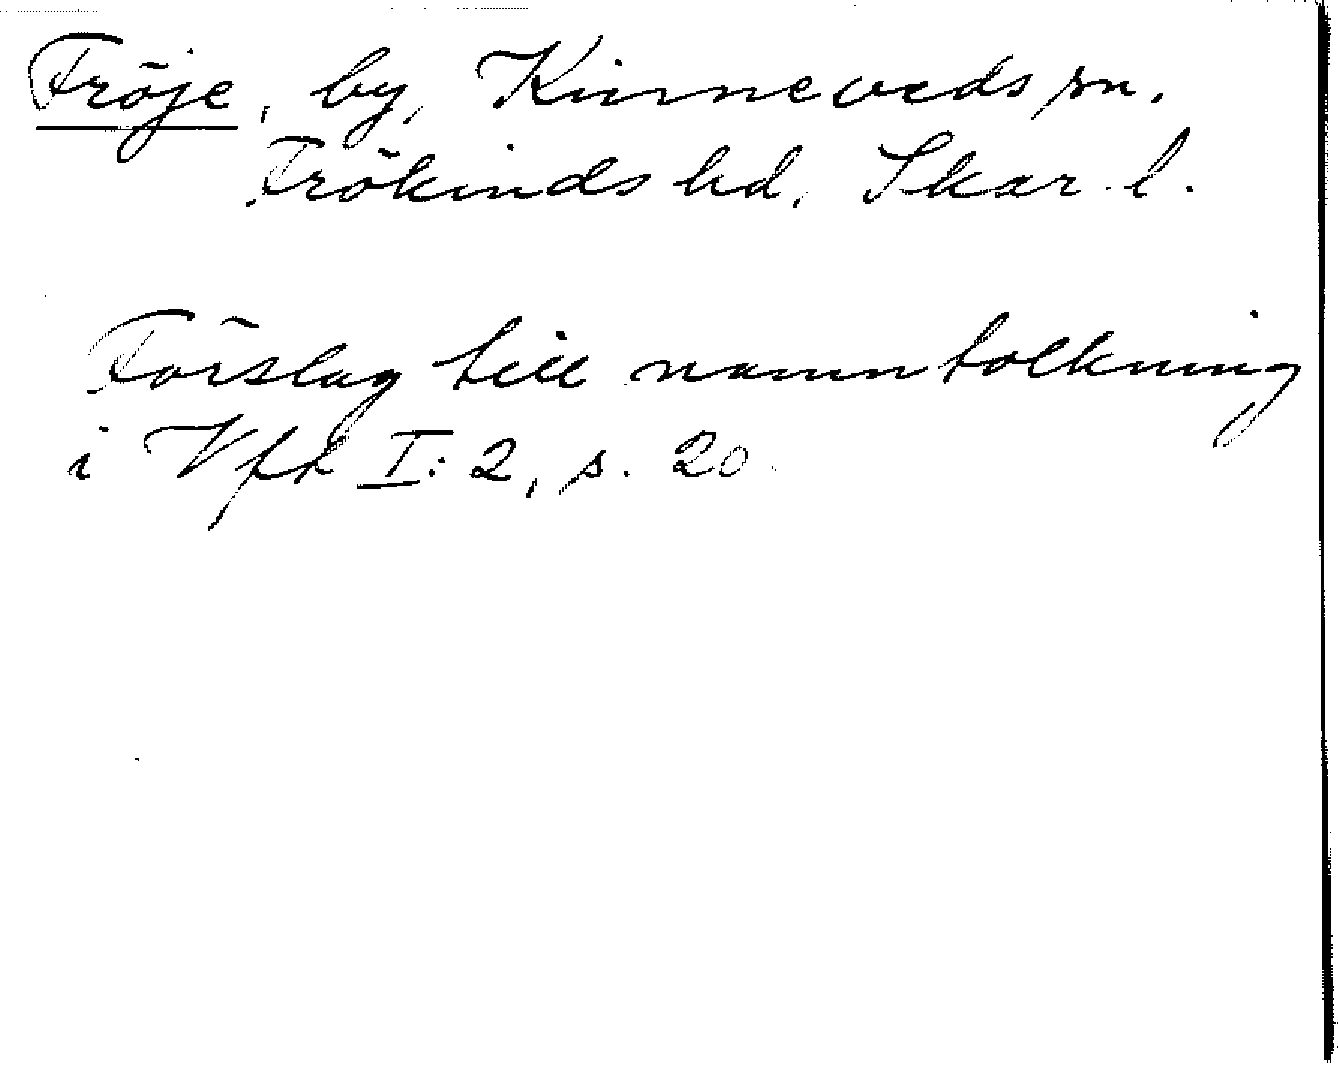 Fröje, by, Kinneveds sn.
Frökinds hd, Skar. l.
Förslag till namntolkning
i Vfk I:2, s. 20.